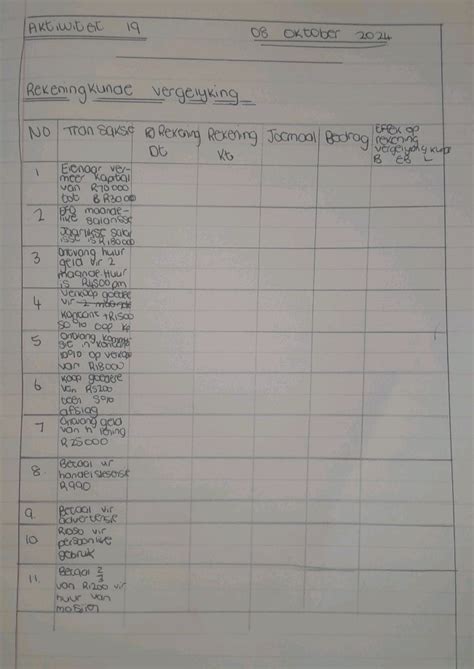 Aktiwiteit 19
08 Oktober 2024
Rekeningkunde vergelyking
NO
Transaksie
Rekening
Dt
Rekening
Kt
Joernaal
Bedrag
Effek op
rekening
vergelyking
B EB L
1
Eienaar ver-
meer kapitaal
van R70000
tot R30000
2
maande-
like salarisse
Jaarlikse salar
isse is R180000
3
Ontvang huur
geld vir 2
maande. Huur
is R4500pm
4
Verkoop goedere
vir
kontant R1500
50% op kp
5
Ontvang
10% op
van R18000
6
Koop goedere
van R5200
teen 5%
afslag
7
Ontvang geld
van 'n lening
R25000
8.
Betaal vir
handelslisensie
R990
9.
Betaal vir
advertensie
10
R1050 vir
persoonlike
gebruik
11.
Betaal 2/3
van R1200 vir
huur van
masjien